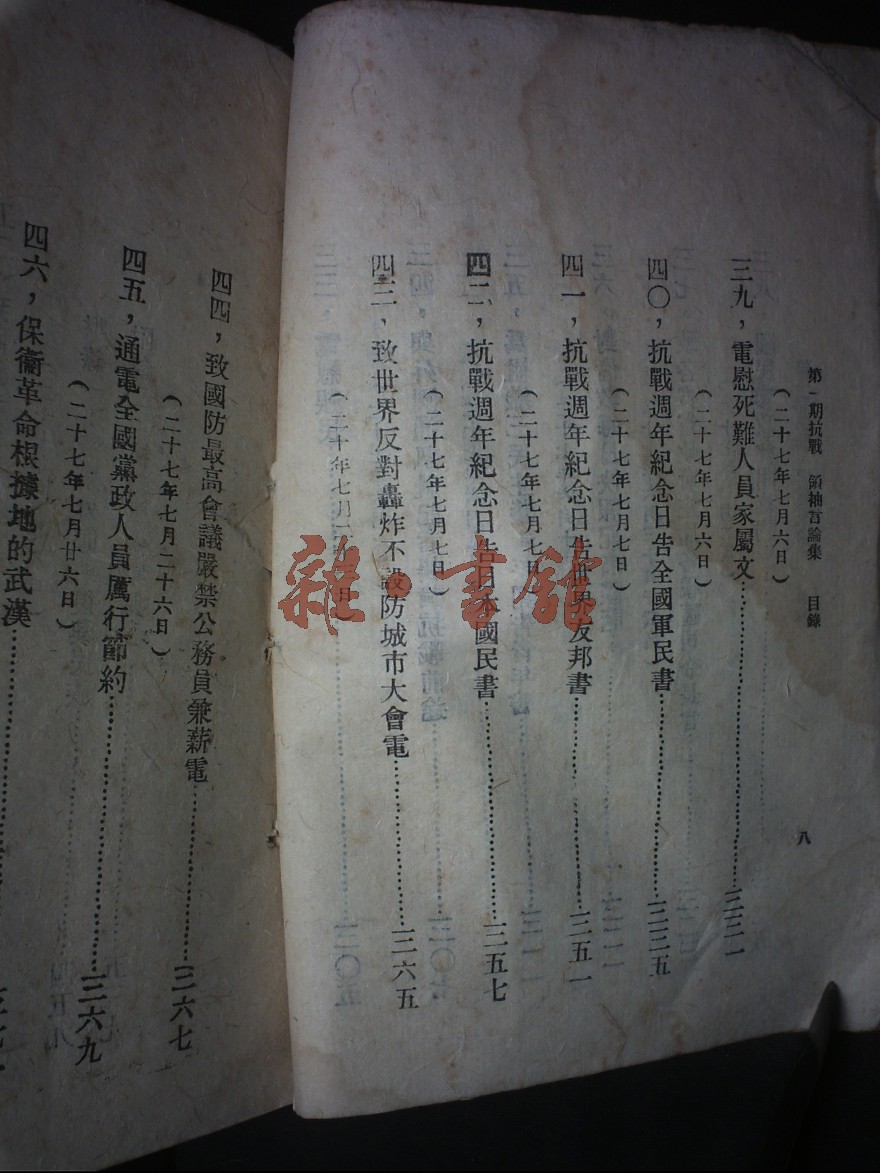 第一期抗戰 領袖言論集 目錄 八
（二十七年七月六日）
三九，電慰死難人員家屬文……二三一
（二十七年七月六日）
四〇，抗戰週年紀念日告全國軍民書……二三五
（二十七年七月七日）
四一，抗戰週年紀念日告世界友邦書……二五一
（二十七年七月七日）
四二，抗戰週年紀念日告日本國民書……二五七
（二十七年七月七日）
四三，致世界反對轟炸不設防城市大會電……二六五
（二十七年七月二 日）
四四，致國防最高會議嚴禁公務員兼薪電……二六七
（二十七年七月二十六日）
四五，通電全國黨政人員厲行節約……二六九
（二十七年七月廿六日）
四六，保衞革命根據地的武漢……
雜·書館